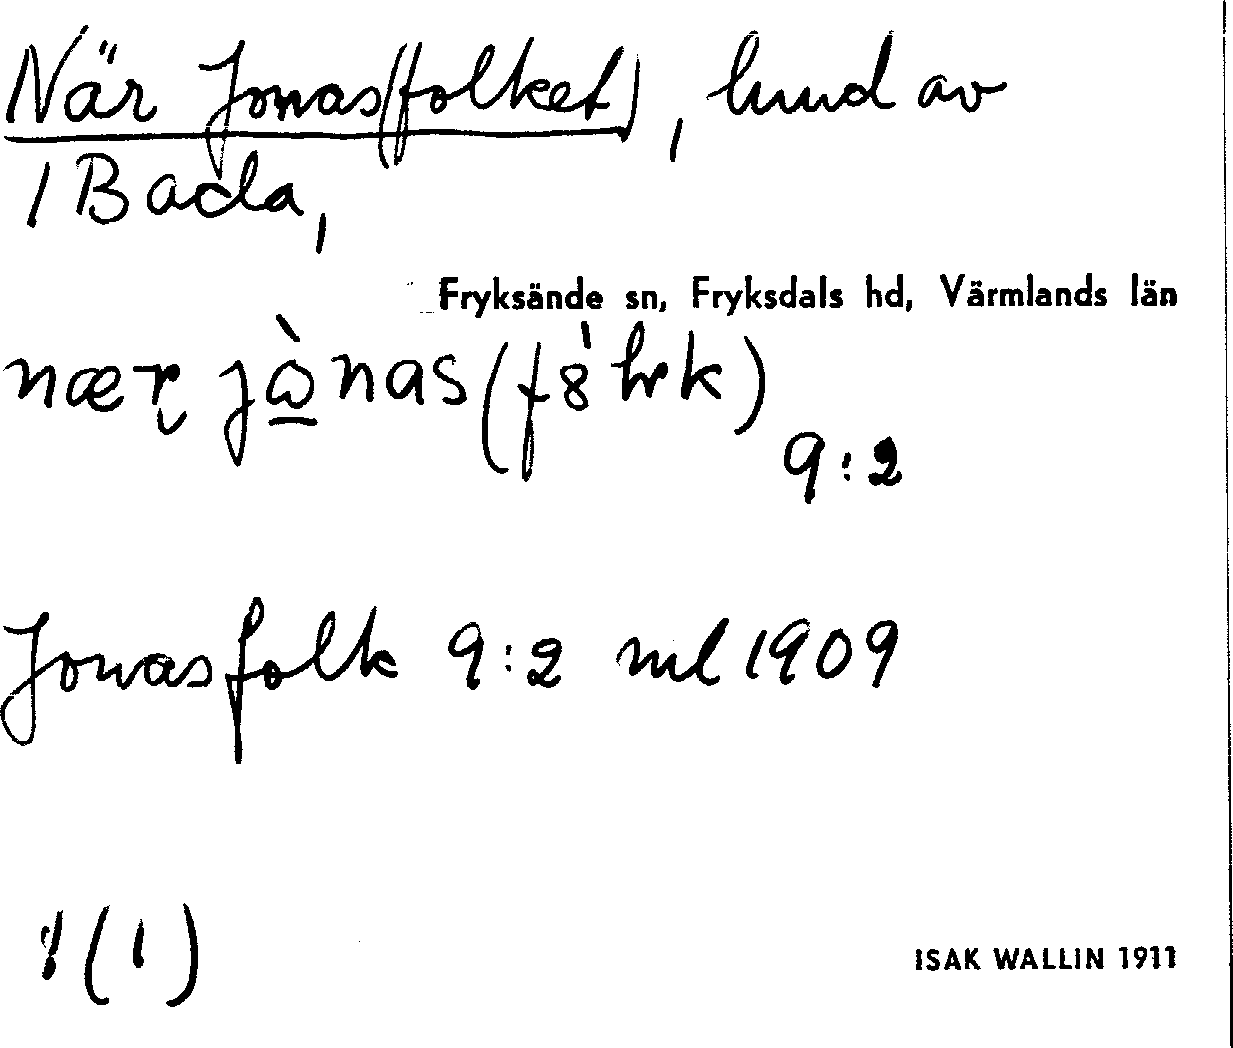 När Jonas(folket), hmd av
1 Bada,
Fryksände sn, Fryksdals hd, Värmlands län
nær jònas(f
9:2
Jonasfolk 9:2 ml 1909
1(1)
ISAK WALLIN 1911